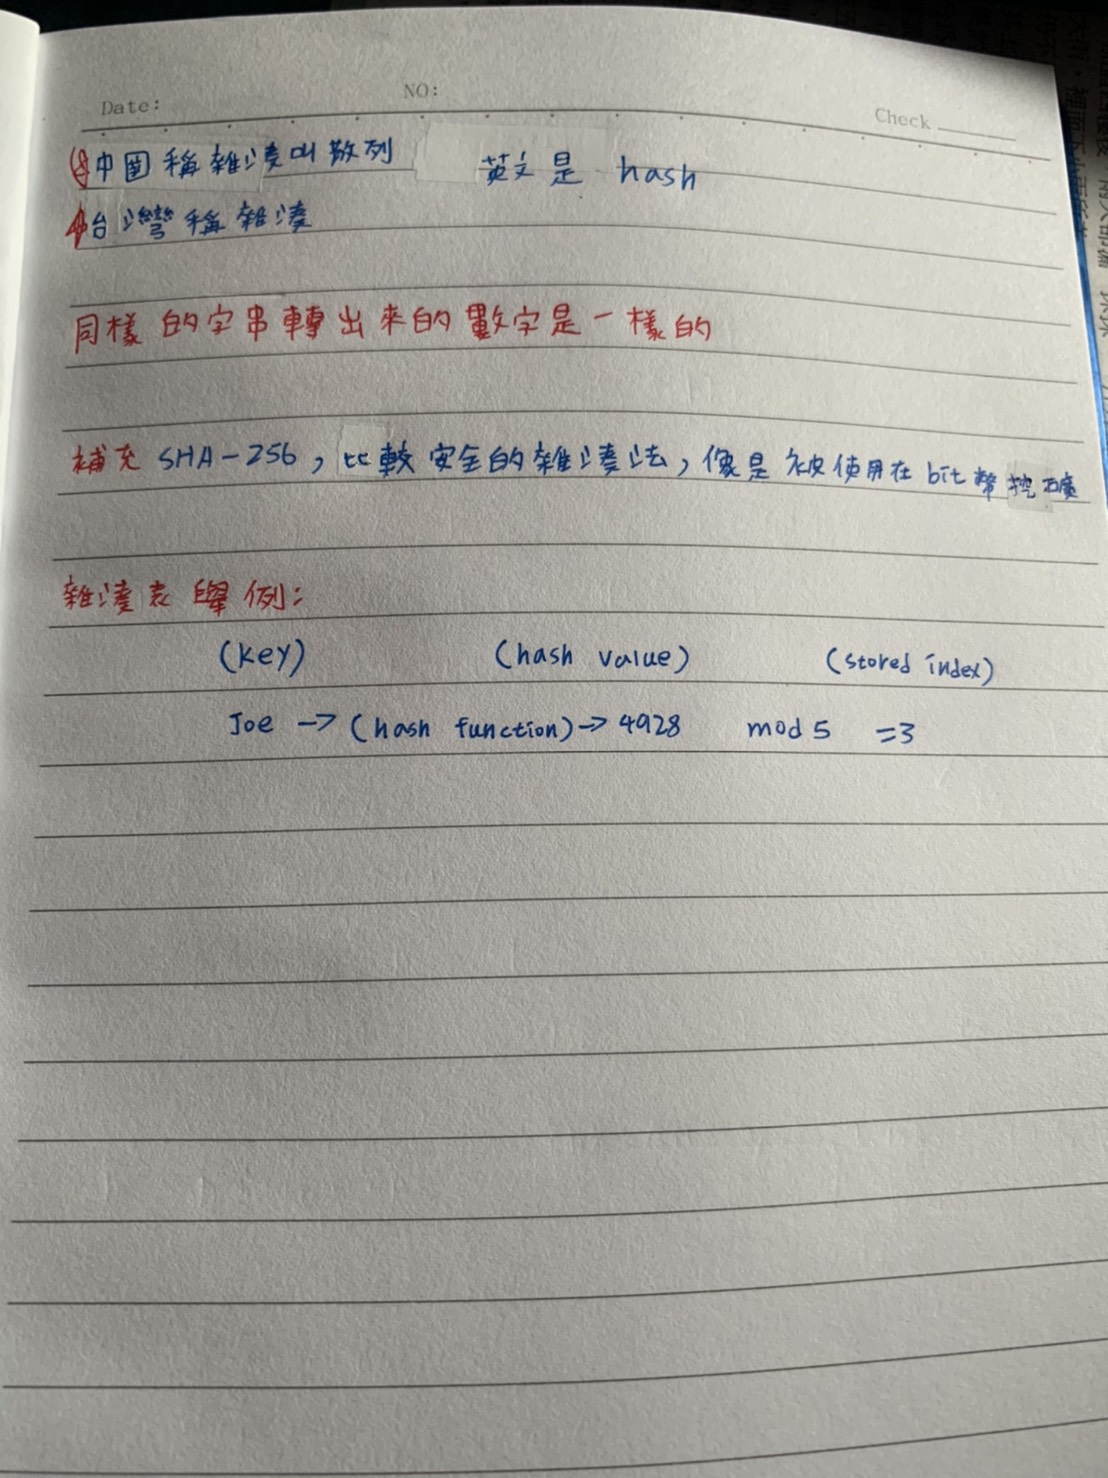 Date:
NO:
Check
中國稱雜湊叫散列 英文是 hash
台灣稱雜湊
同樣的字串轉出來的數字是一樣的
補充 SHA-256, 比較安全的雜湊法, 像是被使用在 bit 幣挖礦
雜湊表舉例:
(key) (hash value) (stored index)
Joe -> (hash function) -> 4928 mod 5 =3